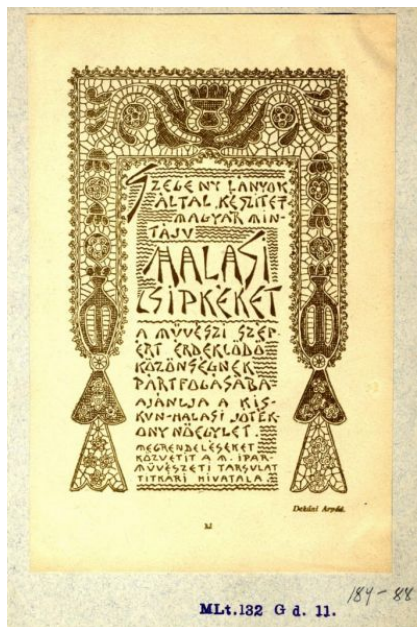 SZEGÉNY LÁNYOK
ÁLTAL KÉSZÍTET
MAGYAR MIN-
TÁJU
HALASI
CSIPKÉKET
A MŰVÉSZI SZÉP-
ÉRT ÉRDEKLŐDŐ
KÖZÖNSÉGNEK
PÁRTFOGÁSÁBA
AJÁNLJA A KIS-
KUN-HALASI JÓTÉK-
ONY NŐEGYLET.
MEGRENDELÉSEKET
KÖZVETÍT A M. IPAR-
MŰVÉSZETI TÁRSULAT
TITKÁRI HIVATALA.
Dekáni Árpád.
184-88
MLt.132 G d. 11.